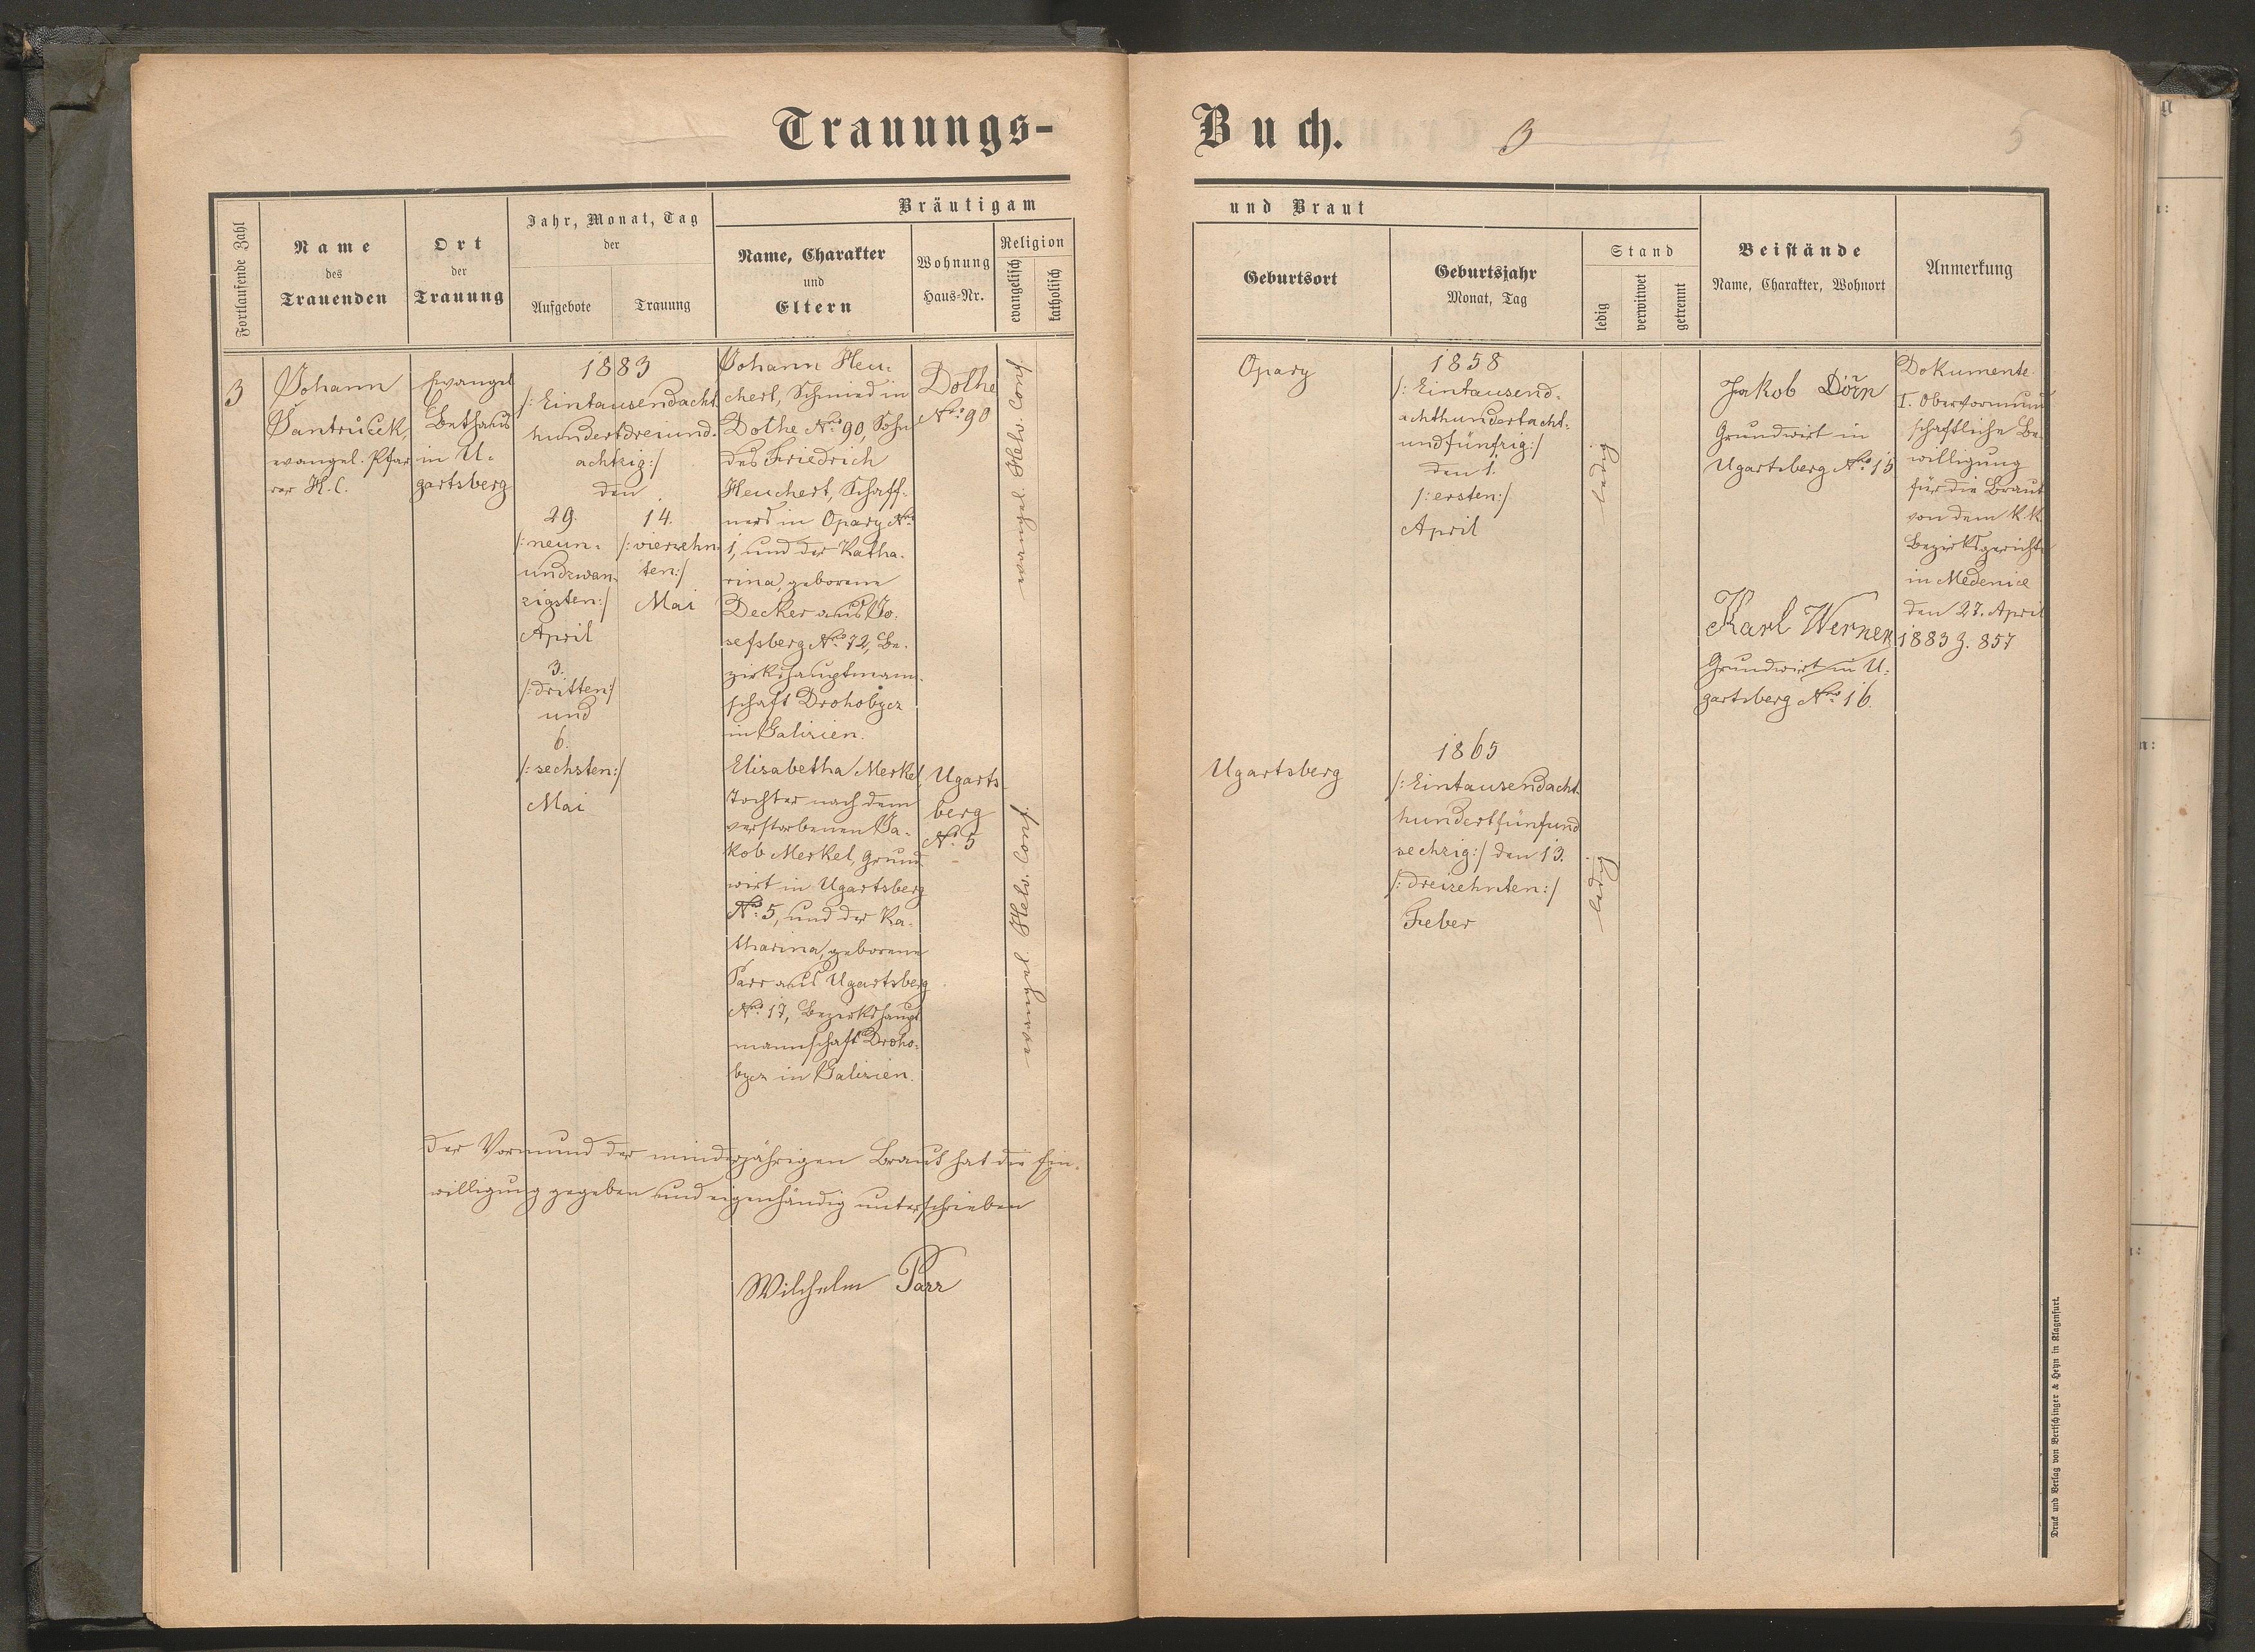 Trauungs-
Buch.
3
4
5
Fortlaufende Zahl
Name
des
Trauenden
Ort
der
Trauung
Jahr, Monat, Tag
der
Aufgebote
Trauung
Bräutigam
Name, Charakter
und
Eltern
Wohnung
Haus-Nr.
Religion
evangelisch
katholisch
und Braut
Geburtsort
Geburtsjahr
Monat, Tag
Stand
ledig
verwitwet
getrennt
Beistände
Name, Charakter, Wohnort
Anmerkung
3
Johann
Šantrůček,
evangel. Pfar
rer H. C.
Evangel
Bethaus
in U-
gartsberg
1883
/: Eintausendacht
hundertdreiund-
achtzig :/
den
29.
/: neun-
undzwan-
zigsten :/
April
3.
/: dritten :/
und
6.
/: sechsten :/
Mai
14.
/: vierzehn-
ten :/
Mai
Johann Heu-
chert, Schmied in
Dolhe Nro 90, Sohn
des Friedrich
Heuchert, Schaff-
ners in Opary Nro
1, und der Katha-
rina, geborene
Decker aus Jo-
sefsberg Nro 72, Be-
zirkshauptmann-
schaft Drohobycz
in Galizien.
Dolhe
Nro 90
evangel. Helv. Conf.
Opary
1858
/: Eintausend-
achthundertacht-
undfünfzig :/
den 1.
/: ersten :/
April
ledig
Jakob Dörn
Grundwirt in
Ugartsberg Nro 15
Karl Werner
Grundwirt in U-
gartsberg Nro 16.
Dokumente
I. Obervormund
schaftliche Be-
willigung
für die Braut
von dem k. k.
Bezirksgerichte
in Medenice
den 27. April
1883 Z. 857
Elisabetha Merkel,
Tochter nach dem
verstorbenen Ja-
kob Merkel, Grund
wirt in Ugartsberg
Nro 5, und der Ka-
tharina, geborene
Parr aus Ugartsberg
Nro 17, Bezirkshaupt
mannschaft Droho-
bycz in Galizien.
Ugarts-
berg
No 5
evangel. Helv. Conf.
Ugartsberg
1865
/: Eintausendacht-
hundertfünfund
sechzig :/ den 13.
/: dreizehnten :/
Feber
ledig
Der Vormund der minderjährigen Braut hat die Ein-
willigung gegeben und eigenhändig unterschrieben
Wilchelm Parr
Druck und Verlag von Bertschinger & Heyn in Klagenfurt.